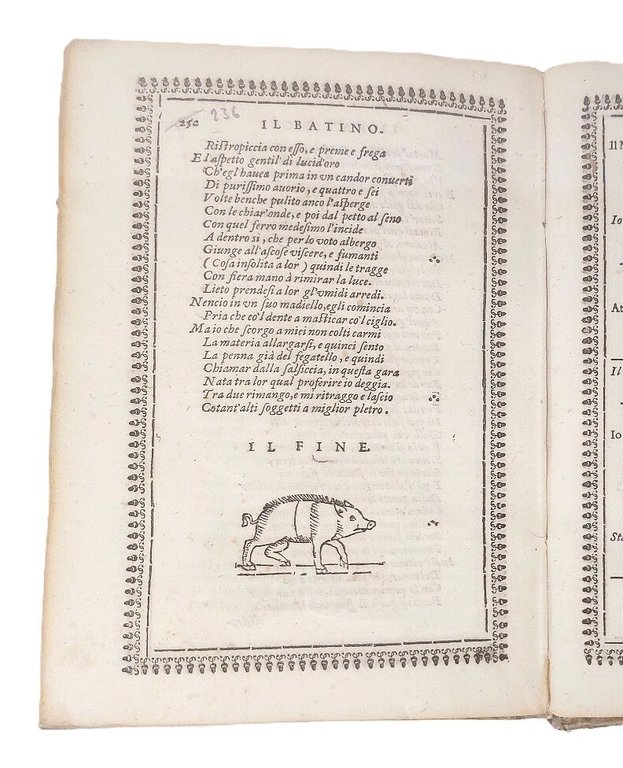 252 236
IL BATINO.
Ristropiccia con esso, e preme e frega
E l'aspetto gentil' di lucid'oro
Ch'egl'hauea prima in vn candor conuerti
Di purissimo auorio, e quattro e sei
Volte benche pulito anco l'asperge
Con le chiar'onde, e poi dal petto al seno
Con quel ferro medesimo l'incide
A dentro sì, che per lo voto albergo
Giunge all'ascose viscere, e fumanti
( Cosa insolita a lor ) quindi le tragge
Con fiera mano à rimirar la luce.
Lieto prendesi a lor gl'vmidi arredi.
Nencio in vn suo madiello, egli comincia
Pria che co'l dente a masticar co'l ciglio.
Ma io che scorgo a miei non colti carmi
La materia allargarsi, e quinci sento
La penna già del fegatello, e quindi
Chiamar dalla salsiccia, in questa gara
Nata tra lor qual proferire io deggia.
Tra due rimango, e mi ritraggo e lascio
Cotant'alti soggetti a miglior pletro.
IL FINE.
Il
Io
At
Il
Io